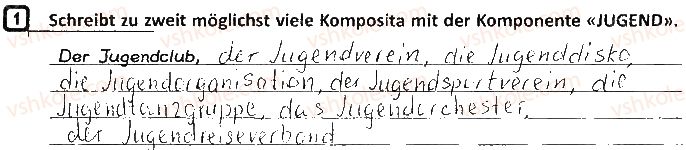 1 Schreibt zu zweit möglichst viele Komposita mit der Komponente «JUGEND».
Der Jugendclub, der Jugendverein, die Jugenddisko,
die Jugendorganisation, der Jugendsportverein, die
Jugendtanzgruppe, das Jugendorchester,
der Jugendreiseverband